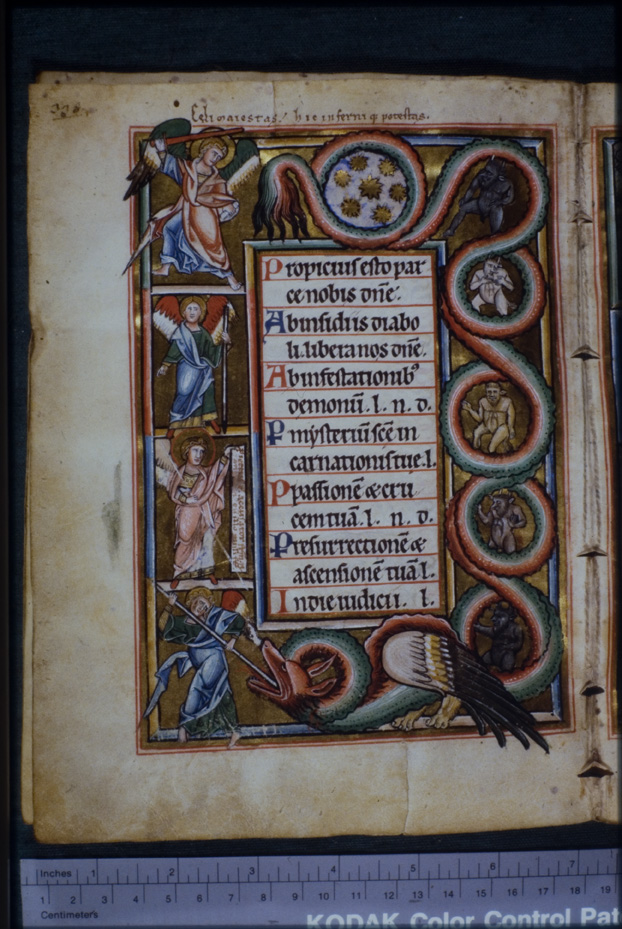 Celi maiestas. hic inferni q potestas.
Propicius esto par
ce nobis dn̄e.
Ab insidiis diabo
li. libera nos dn̄e.
Ab infestationib⁹
demonū. l. n. d.
P mysteriū scē in
carnationis tue. l.
P passionē & cru
cem tuā. l. n. d.
P resurrectionē &
ascensionē tuā l.
In die iudicii. l.
Inches 1 2 3 4 5 6 7
1 2 3 4 5 6 7 8 9 10 11 12 13 14 15 16 17 18 19
Centimeters
KODAK Color Control Pat